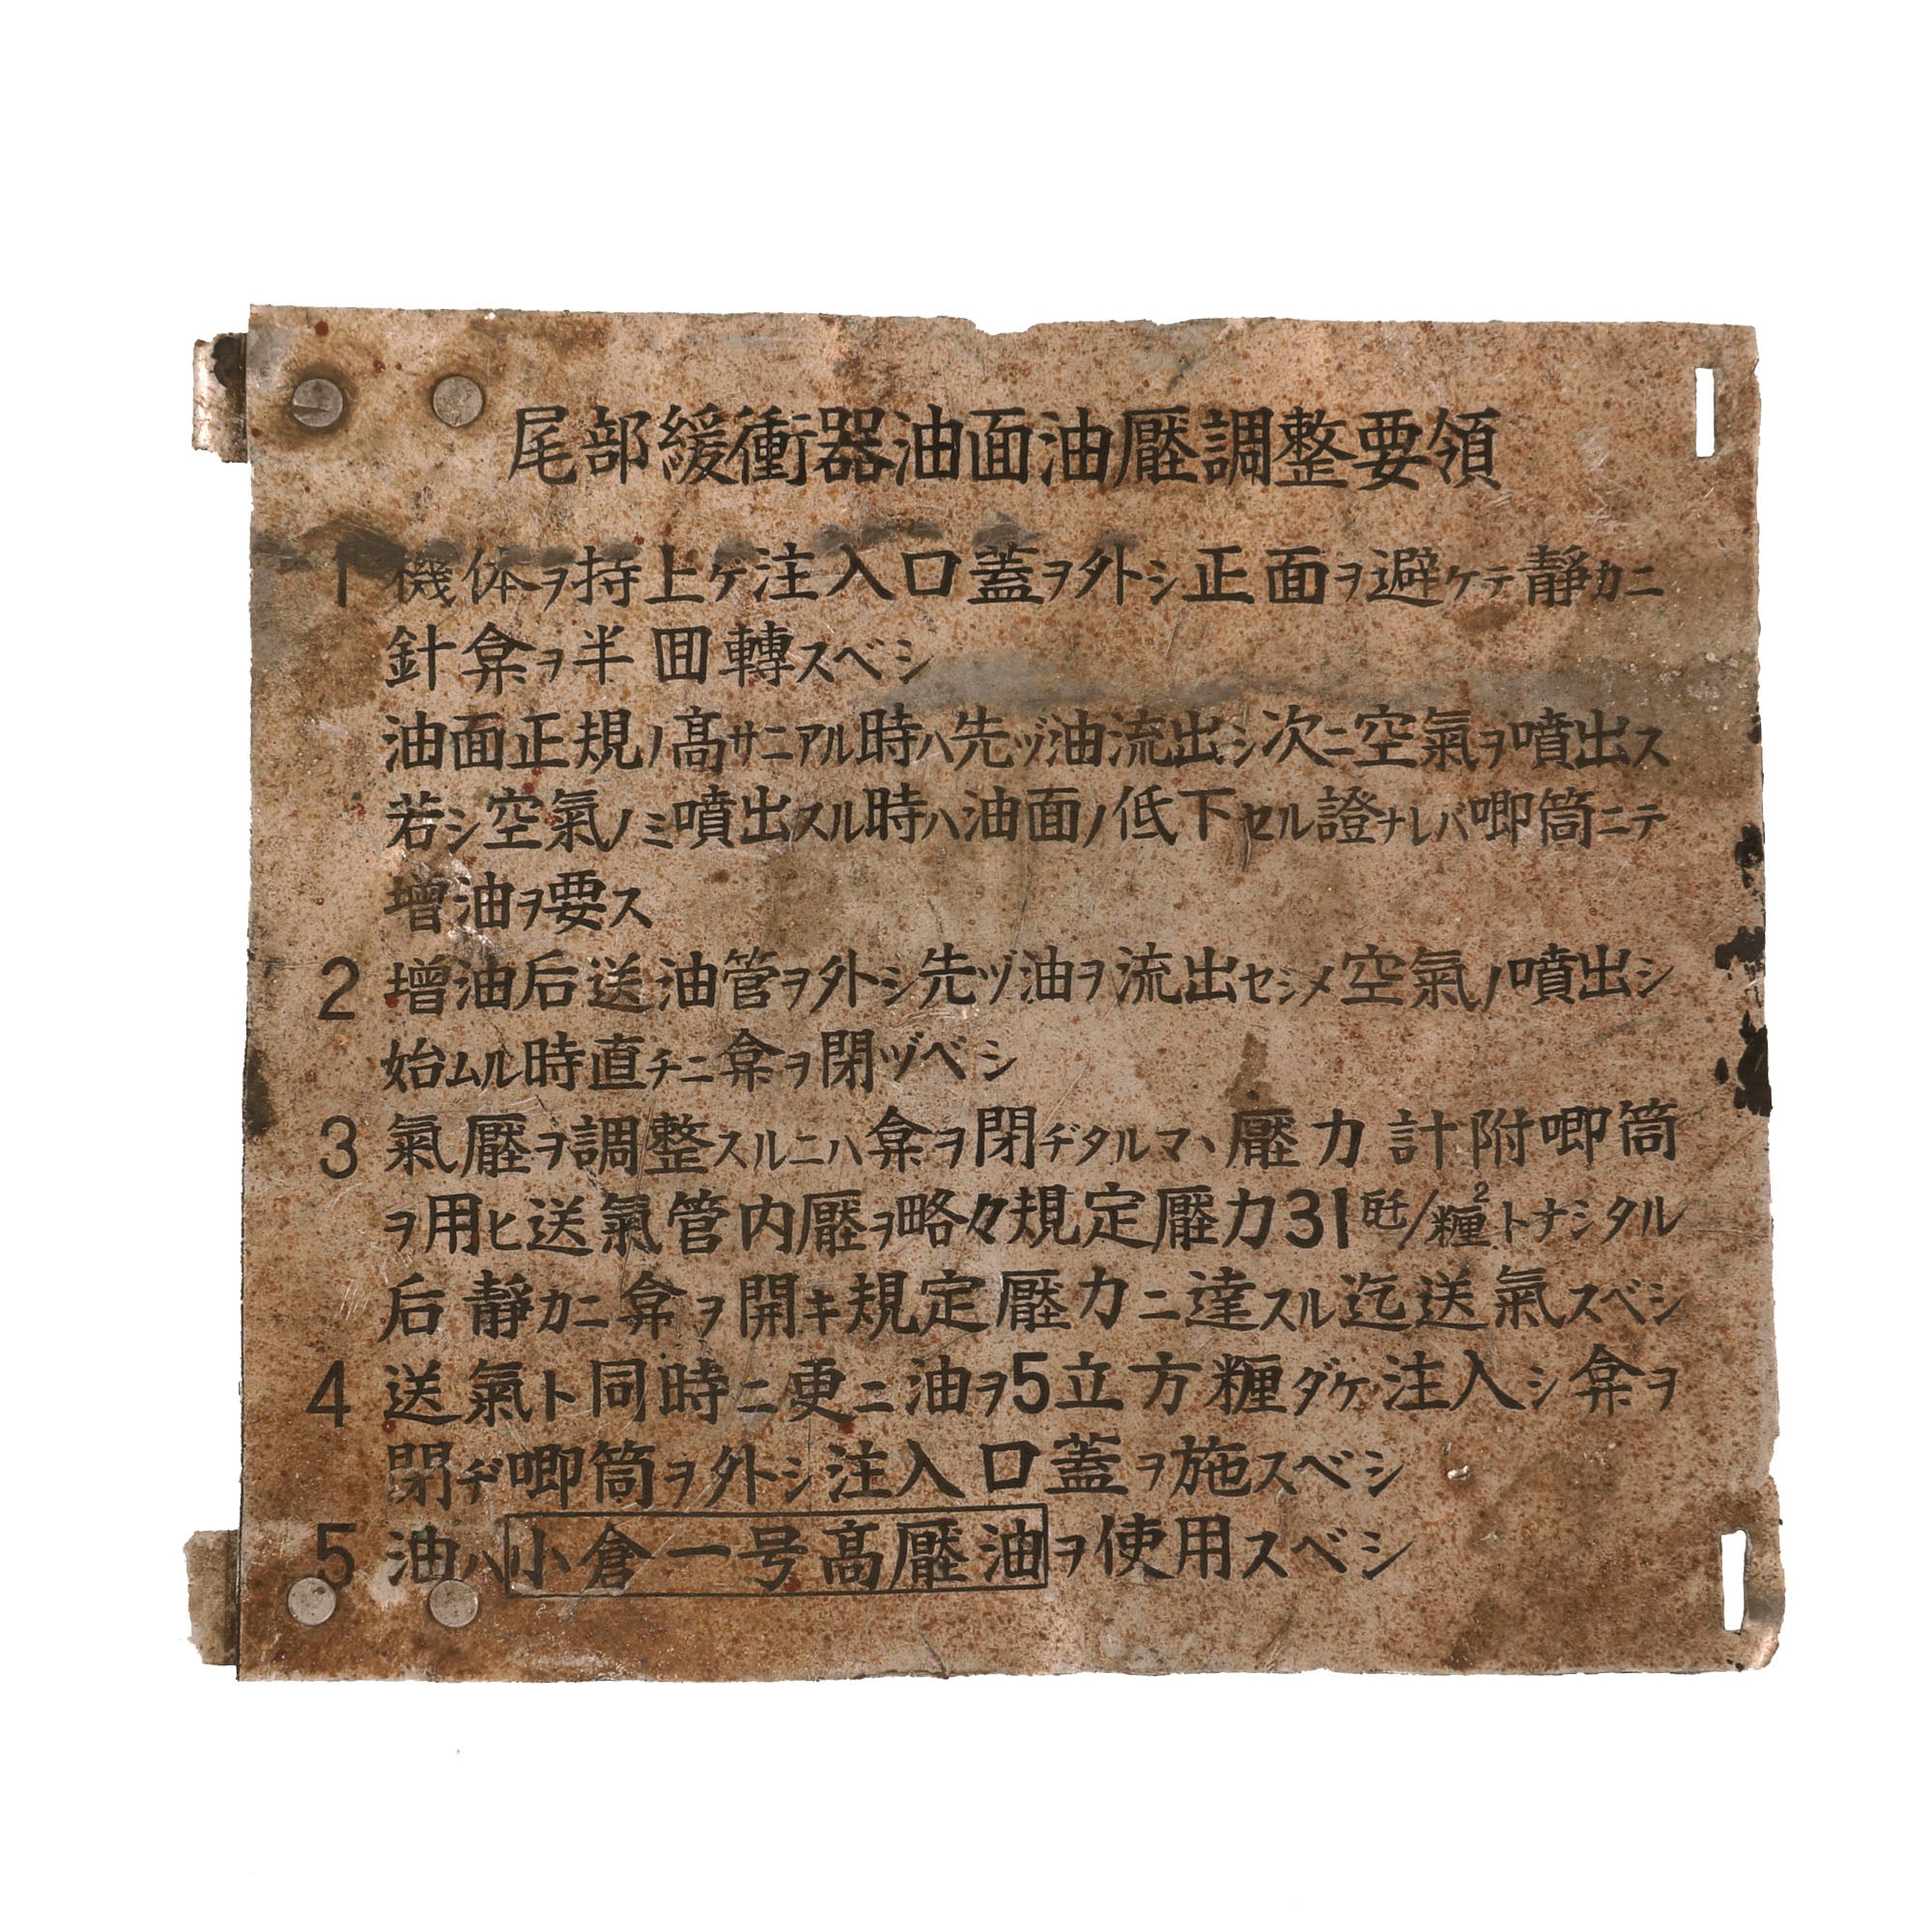 尾部緩衝器油面油壓調整要領
1 機体ヲ持上ゲ注入口蓋ヲ外シ正面ヲ避ケテ靜カニ
針弇ヲ半回轉スベシ
油面正規ノ髙サニアル時ハ先ヅ油流出シ次ニ空氣ヲ噴出ス
若シ空氣ノミ噴出スル時ハ油面ノ低下セル證ナレバ喞筒ニテ
増油ヲ要ス
2 増油后送油管ヲ外シ先ヅ油ヲ流出セシメ空氣ノ噴出シ
始ムル時直チニ弇ヲ閉ヅベシ
3 氣壓ヲ調整スルニハ弇ヲ閉ヂタルマヽ壓力計附喞筒
ヲ用ヒ送氣管内壓ヲ略々規定壓力31瓩/糎²トナシタル
后靜カニ弇ヲ開キ規定壓力ニ達スル迄送氣スベシ
4 送氣ト同時ニ更ニ油ヲ5立方糎ダケ注入シ弇ヲ
閉ヂ喞筒ヲ外シ注入口蓋ヲ施スベシ
5 油ハ小倉一号髙壓油ヲ使用スベシ